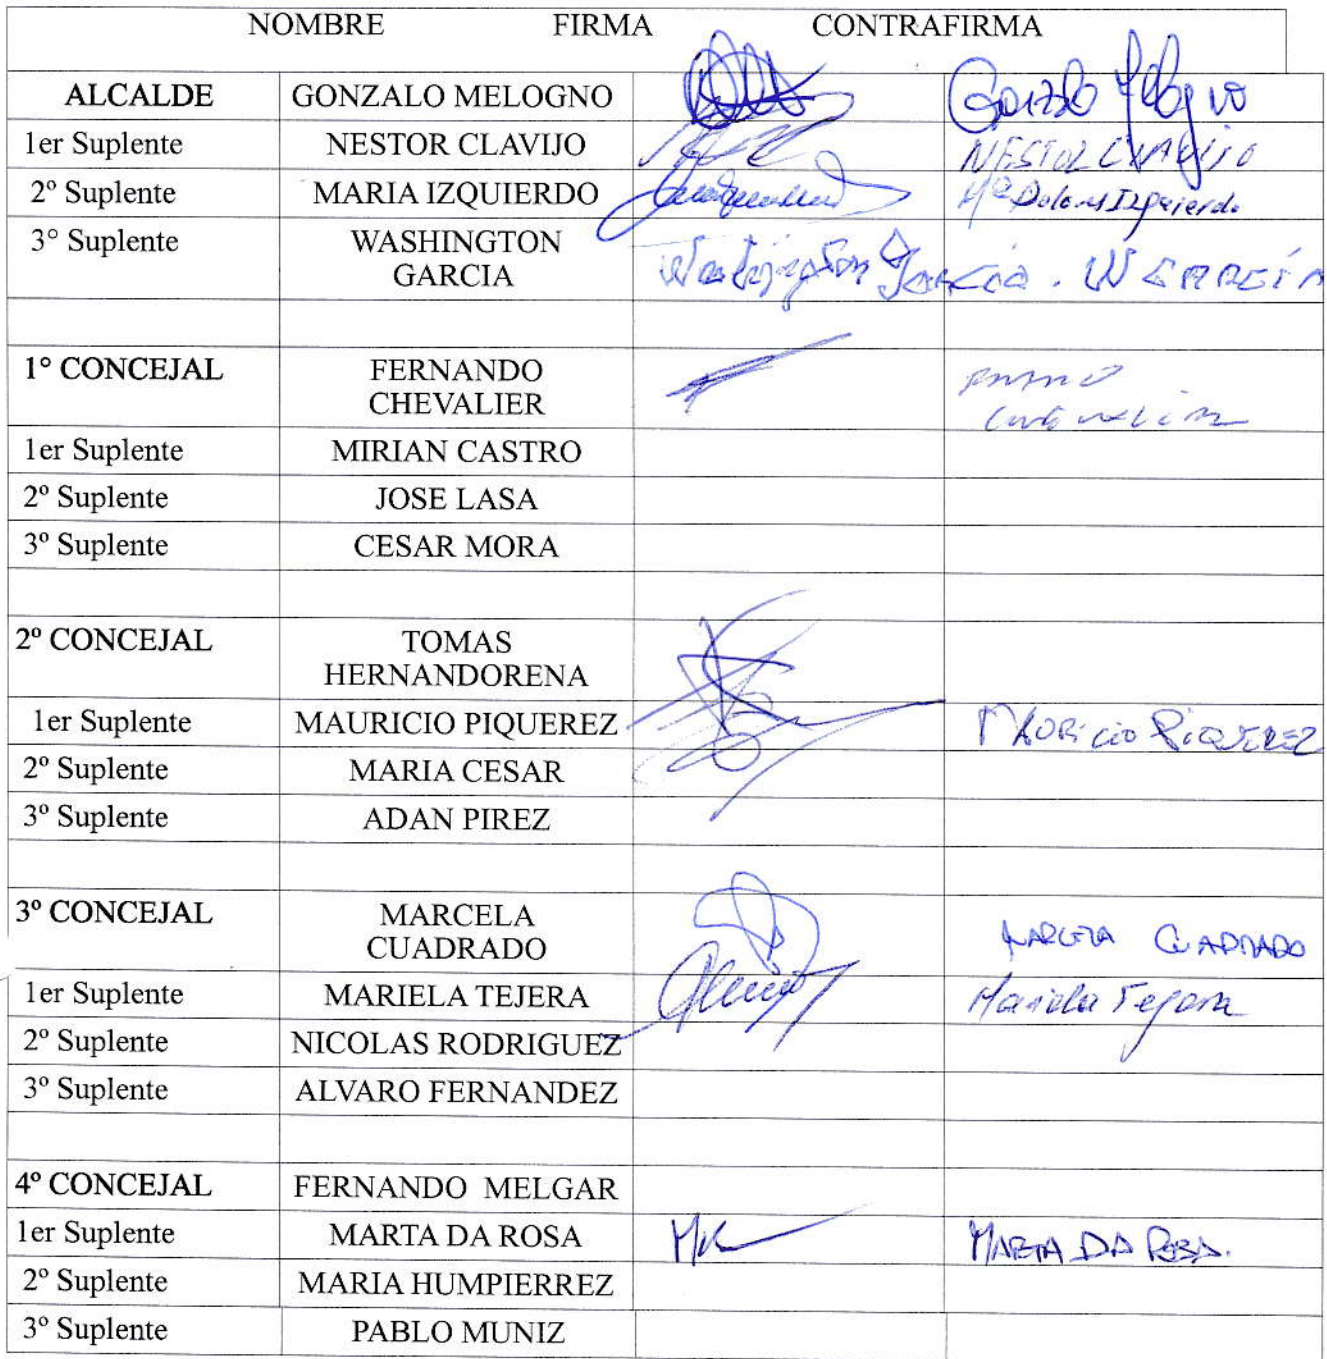 NOMBRE FIRMA CONTRAFIRMA
ALCALDE GONZALO MELOGNO Gonzalo Melogno
1er Suplente NESTOR CLAVIJO NESTOR CLAVIJO
2º Suplente MARIA IZQUIERDO Mª Dolores Izquierdo
3° Suplente WASHINGTON
GARCIA Washington García . W GARCÍA
1° CONCEJAL FERNANDO
CHEVALIER
1er Suplente MIRIAN CASTRO
2º Suplente JOSE LASA
3º Suplente CESAR MORA
2º CONCEJAL TOMAS
HERNANDORENA
1er Suplente MAURICIO PIQUEREZ MAURICIO PIQUEREZ
2º Suplente MARIA CESAR
3º Suplente ADAN PIREZ
3º CONCEJAL MARCELA
CUADRADO MARCELA CUADRADO
1er Suplente MARIELA TEJERA Mariela Tejera
2º Suplente NICOLAS RODRIGUEZ
3º Suplente ALVARO FERNANDEZ
4º CONCEJAL FERNANDO MELGAR
1er Suplente MARTA DA ROSA MARTA DA ROSA.
2º Suplente MARIA HUMPIERREZ
3º Suplente PABLO MUNIZ